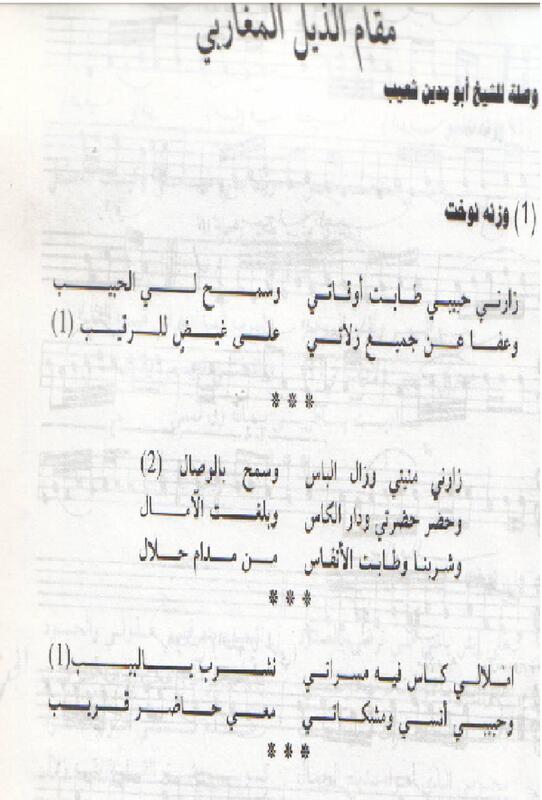 مقام الذيل المغاربي
وصلة للشيخ أبو مدين شعيب
(1) وزنه نوخت
زارني حبيبي طابت أوقاتي وسمح لي الحبيب
وعفا عن جميع زلاتي على غيض للرقيب (1)
***
زارني منيتي وزال الباس وسمح بالوصال (2)
وحضر حضرتي ودار الكاس وبلغت الآمال
وشربنا وطابت الأنفاس من مدام حلال
***
املالي كاس فيه مسراتي نشرب يالبيب (1)
وحبيبي أنسي ومشكاتي معي حاضر قريب
***